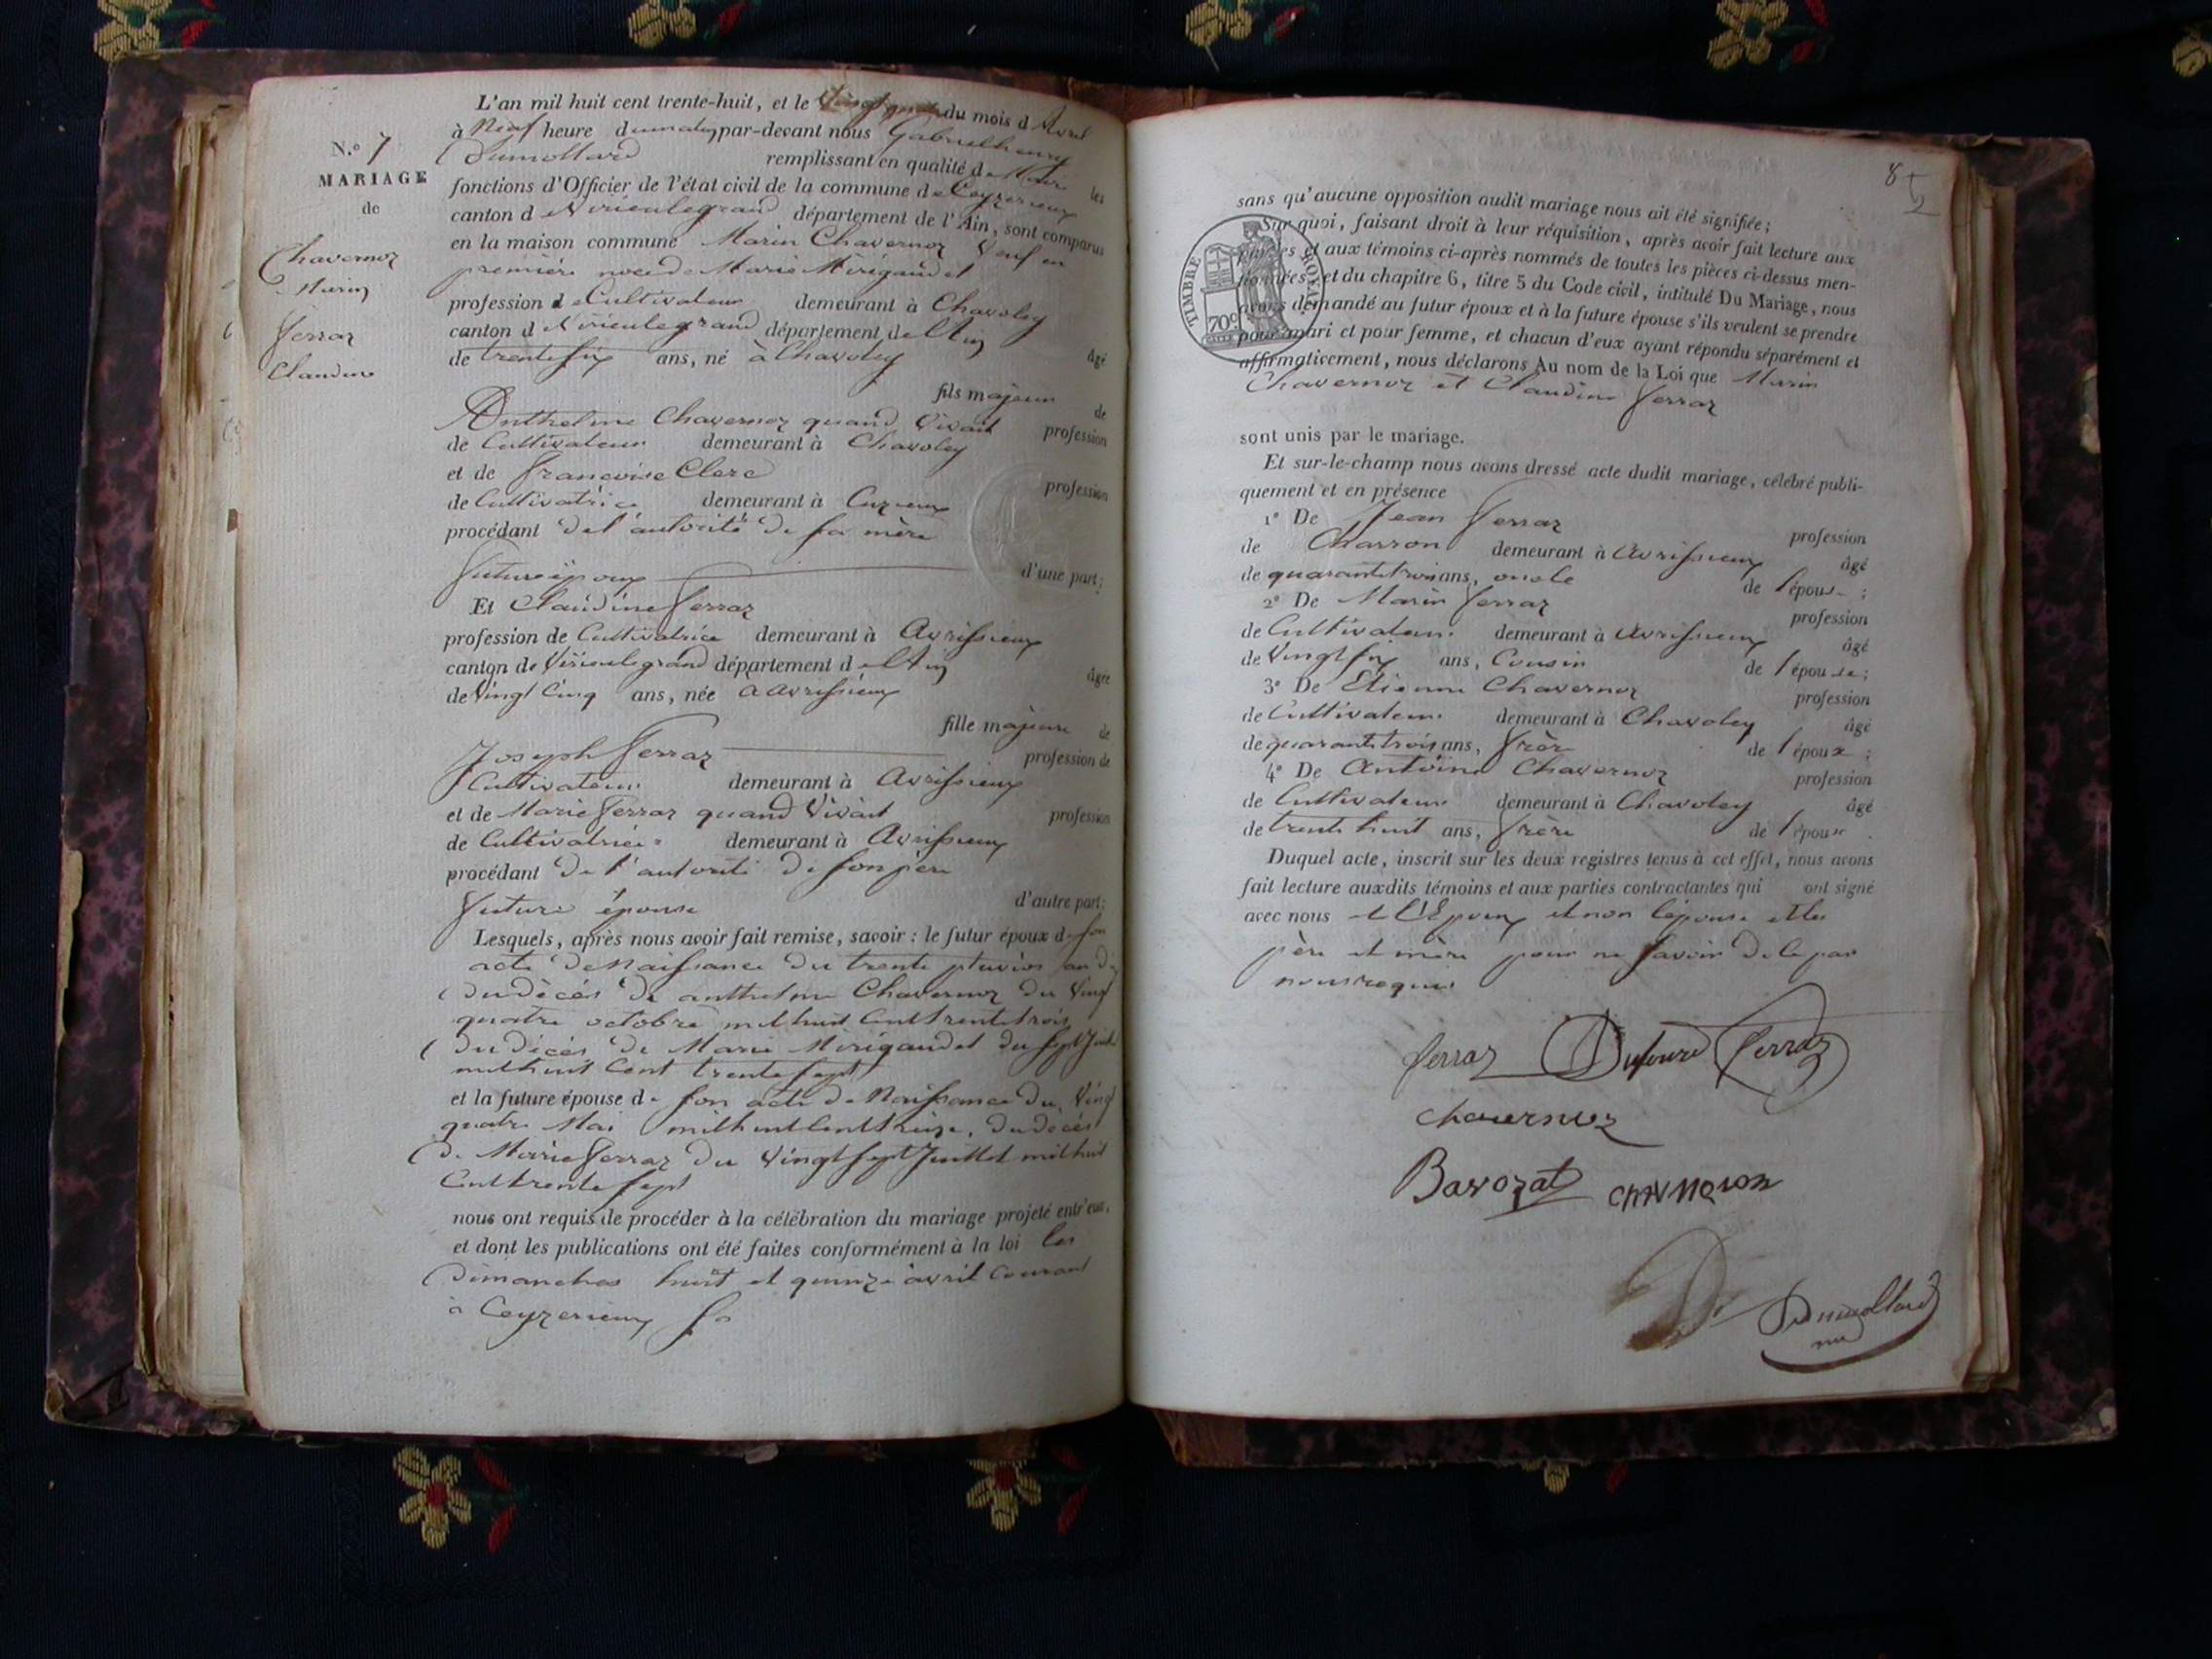 N.º 7
MARIAGE
de
Chavernoz
Marin
Ferraz
Claudine
L'an mil huit cent trente-huit, et le du mois d'Avril
à Neuf heure du matin par-devant nous Gabriel henry
Dumollard remplissant en qualité de Maire les
fonctions d'Officier de l'état civil de la commune de Ceyzerieux
canton de Virieulegrand département de l'Ain, sont comparus
en la maison commune Marin Chavernoz Veuf en
première noce de Marie Mirigaudet
profession de Cultivateur demeurant à Chavoley
canton de Virieulegrand département de l'Ain
de trente six ans, né à Chavoley âgé
fils majeur de
Anthelme Chavernoz quand Vivait profession
de Cultivateur demeurant à Chavoley
et de Francoise Clerc profession
de Cultivatrice demeurant à Cuzieux
procédant de l'autorité de sa mère
futur époux d'une part;
Et Claudine Ferraz
profession de Cultivatrice demeurant à Avrissieux
canton de Virieulegrand département de l'Ain
de Vingt Cinq ans, née à avrissieux âgée
fille majeure de
Joseph Ferraz profession de
Cultivateur demeurant à Avrissieux
et de Marie Ferraz quand Vivait profession
de Cultivatrice demeurant à Avrissieux
procédant de l'autorité de son père
future épouse d'autre part;
Lesquels, après nous avoir fait remise, savoir: le futur époux de son
acte de Naissance du trente pluvios an dix
du décés de anthelme Chavernoz du Vingt
quatre octobre mil huit Cent trente trois
du décés de Marie Mirigaudet du sept
mil huit Cent trente sept
et la future épouse de son acte de Naissance du Vingt
quatre Mai mil huit Cent treize, du décés
de Marie Ferraz du Vingt sept Juillet mil huit
Cent trente sept
nous ont requis de procéder à la célébration du mariage projeté entr'eux,
et dont les publications ont été faites conformément à la loi les
Dimanches huit et quinze avril Courant
à Ceyzerieux
8
sans qu'aucune opposition audit mariage nous ait été signifiée;
Sur quoi, faisant droit à leur réquisition, après avoir fait lecture aux
parties et aux témoins ci-après nommés de toutes les pièces ci-dessus men-
tionnées, et du chapitre 6, titre 5 du Code civil, intitulé Du Mariage, nous
avons demandé au futur époux et à la future épouse s'ils veulent se prendre
pour mari et pour femme, et chacun d'eux ayant répondu séparément et
affirmativement, nous déclarons Au nom de la Loi que Marin
Chavernoz et Claudine Ferraz
TIMBRE ROYAL
70c
sont unis par le mariage.
Et sur-le-champ nous avons dressé acte dudit mariage, célébré publi-
quement et en présence
1º De Jean Ferraz profession
de Charron demeurant à Avrissieux âgé
de quarante trois ans, oncle de l'épouse;
2º De Marin Ferraz profession
de Cultivateur demeurant à Avrissieux âgé
de Vingt six ans, Cousin de l'épouse;
3º De Etienne Chavernoz profession
de Cultivateur demeurant à Chavoley âgé
de quarante trois ans, frère de l'époux;
4º De Antoine Chavernoz profession
de Cultivateur demeurant à Chavoley âgé
de trente huit ans, frère de l'époux.
Duquel acte, inscrit sur les deux registres tenus à cet effet, nous avons
fait lecture auxdits témoins et aux parties contractantes qui ont signé
avec nous et l'Epoux et non l'épouse et les
père et mère pour ne savoir de ce par
nous requis
ferraz Dufourd ferraz
chavernoz
Bavozat
Dumollard